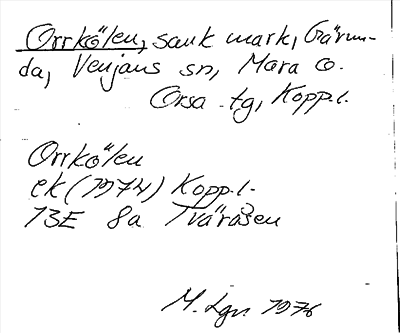 Orrkölen, sank mark, Gävun-
da, Venjans sn, Mora o.
Orsa tg, Kopp.l.
Orrkölen
ek (1974) Kopp.l.
13E 8a Tväråsen
M. Lgr. 1976